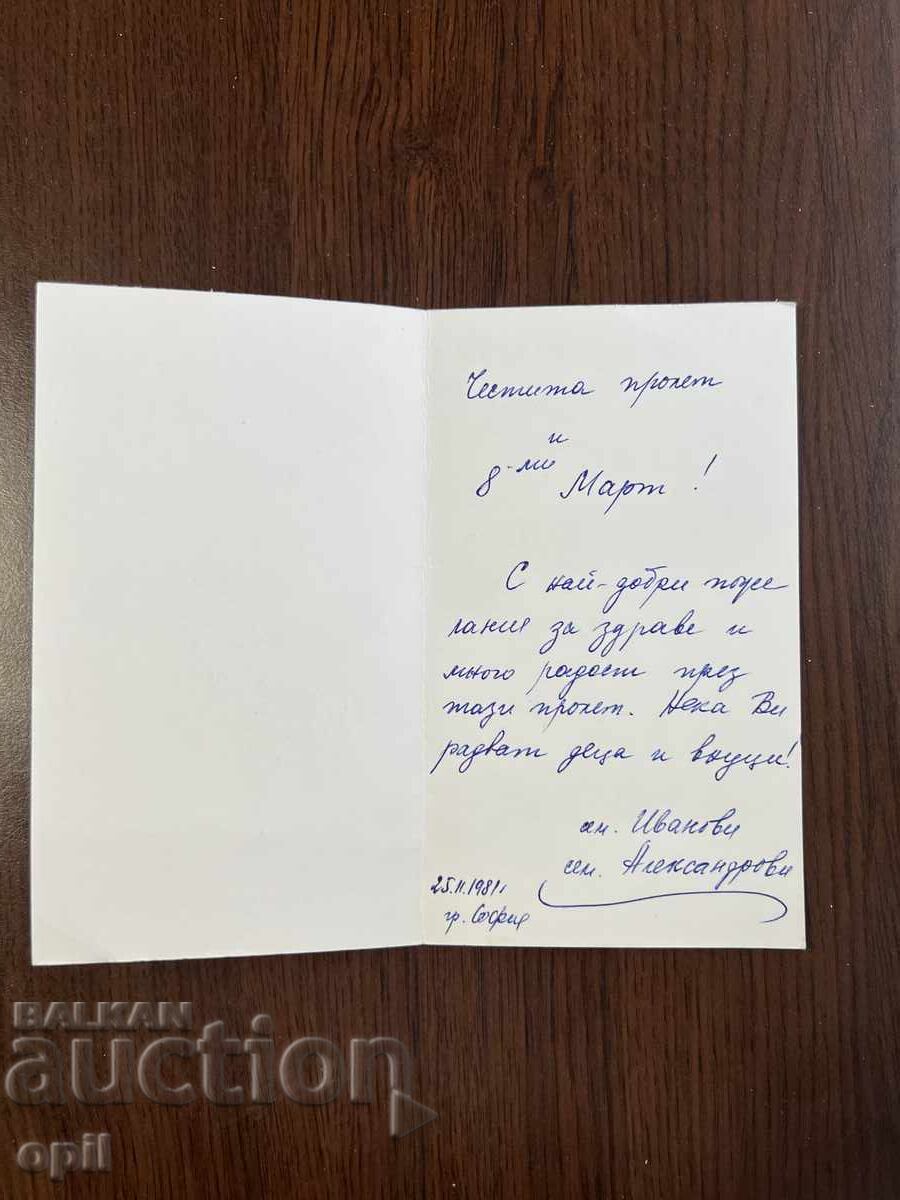 Честита пролет
и
8-ми Март!
С най-добри поже
лания за здраве и
много радост през
тази пролет. Нека Ви
радват деца и внуци!
сем. Иванови
сем. Александрови
25.II.1981г
гр. София
BALKAN
auction
opil